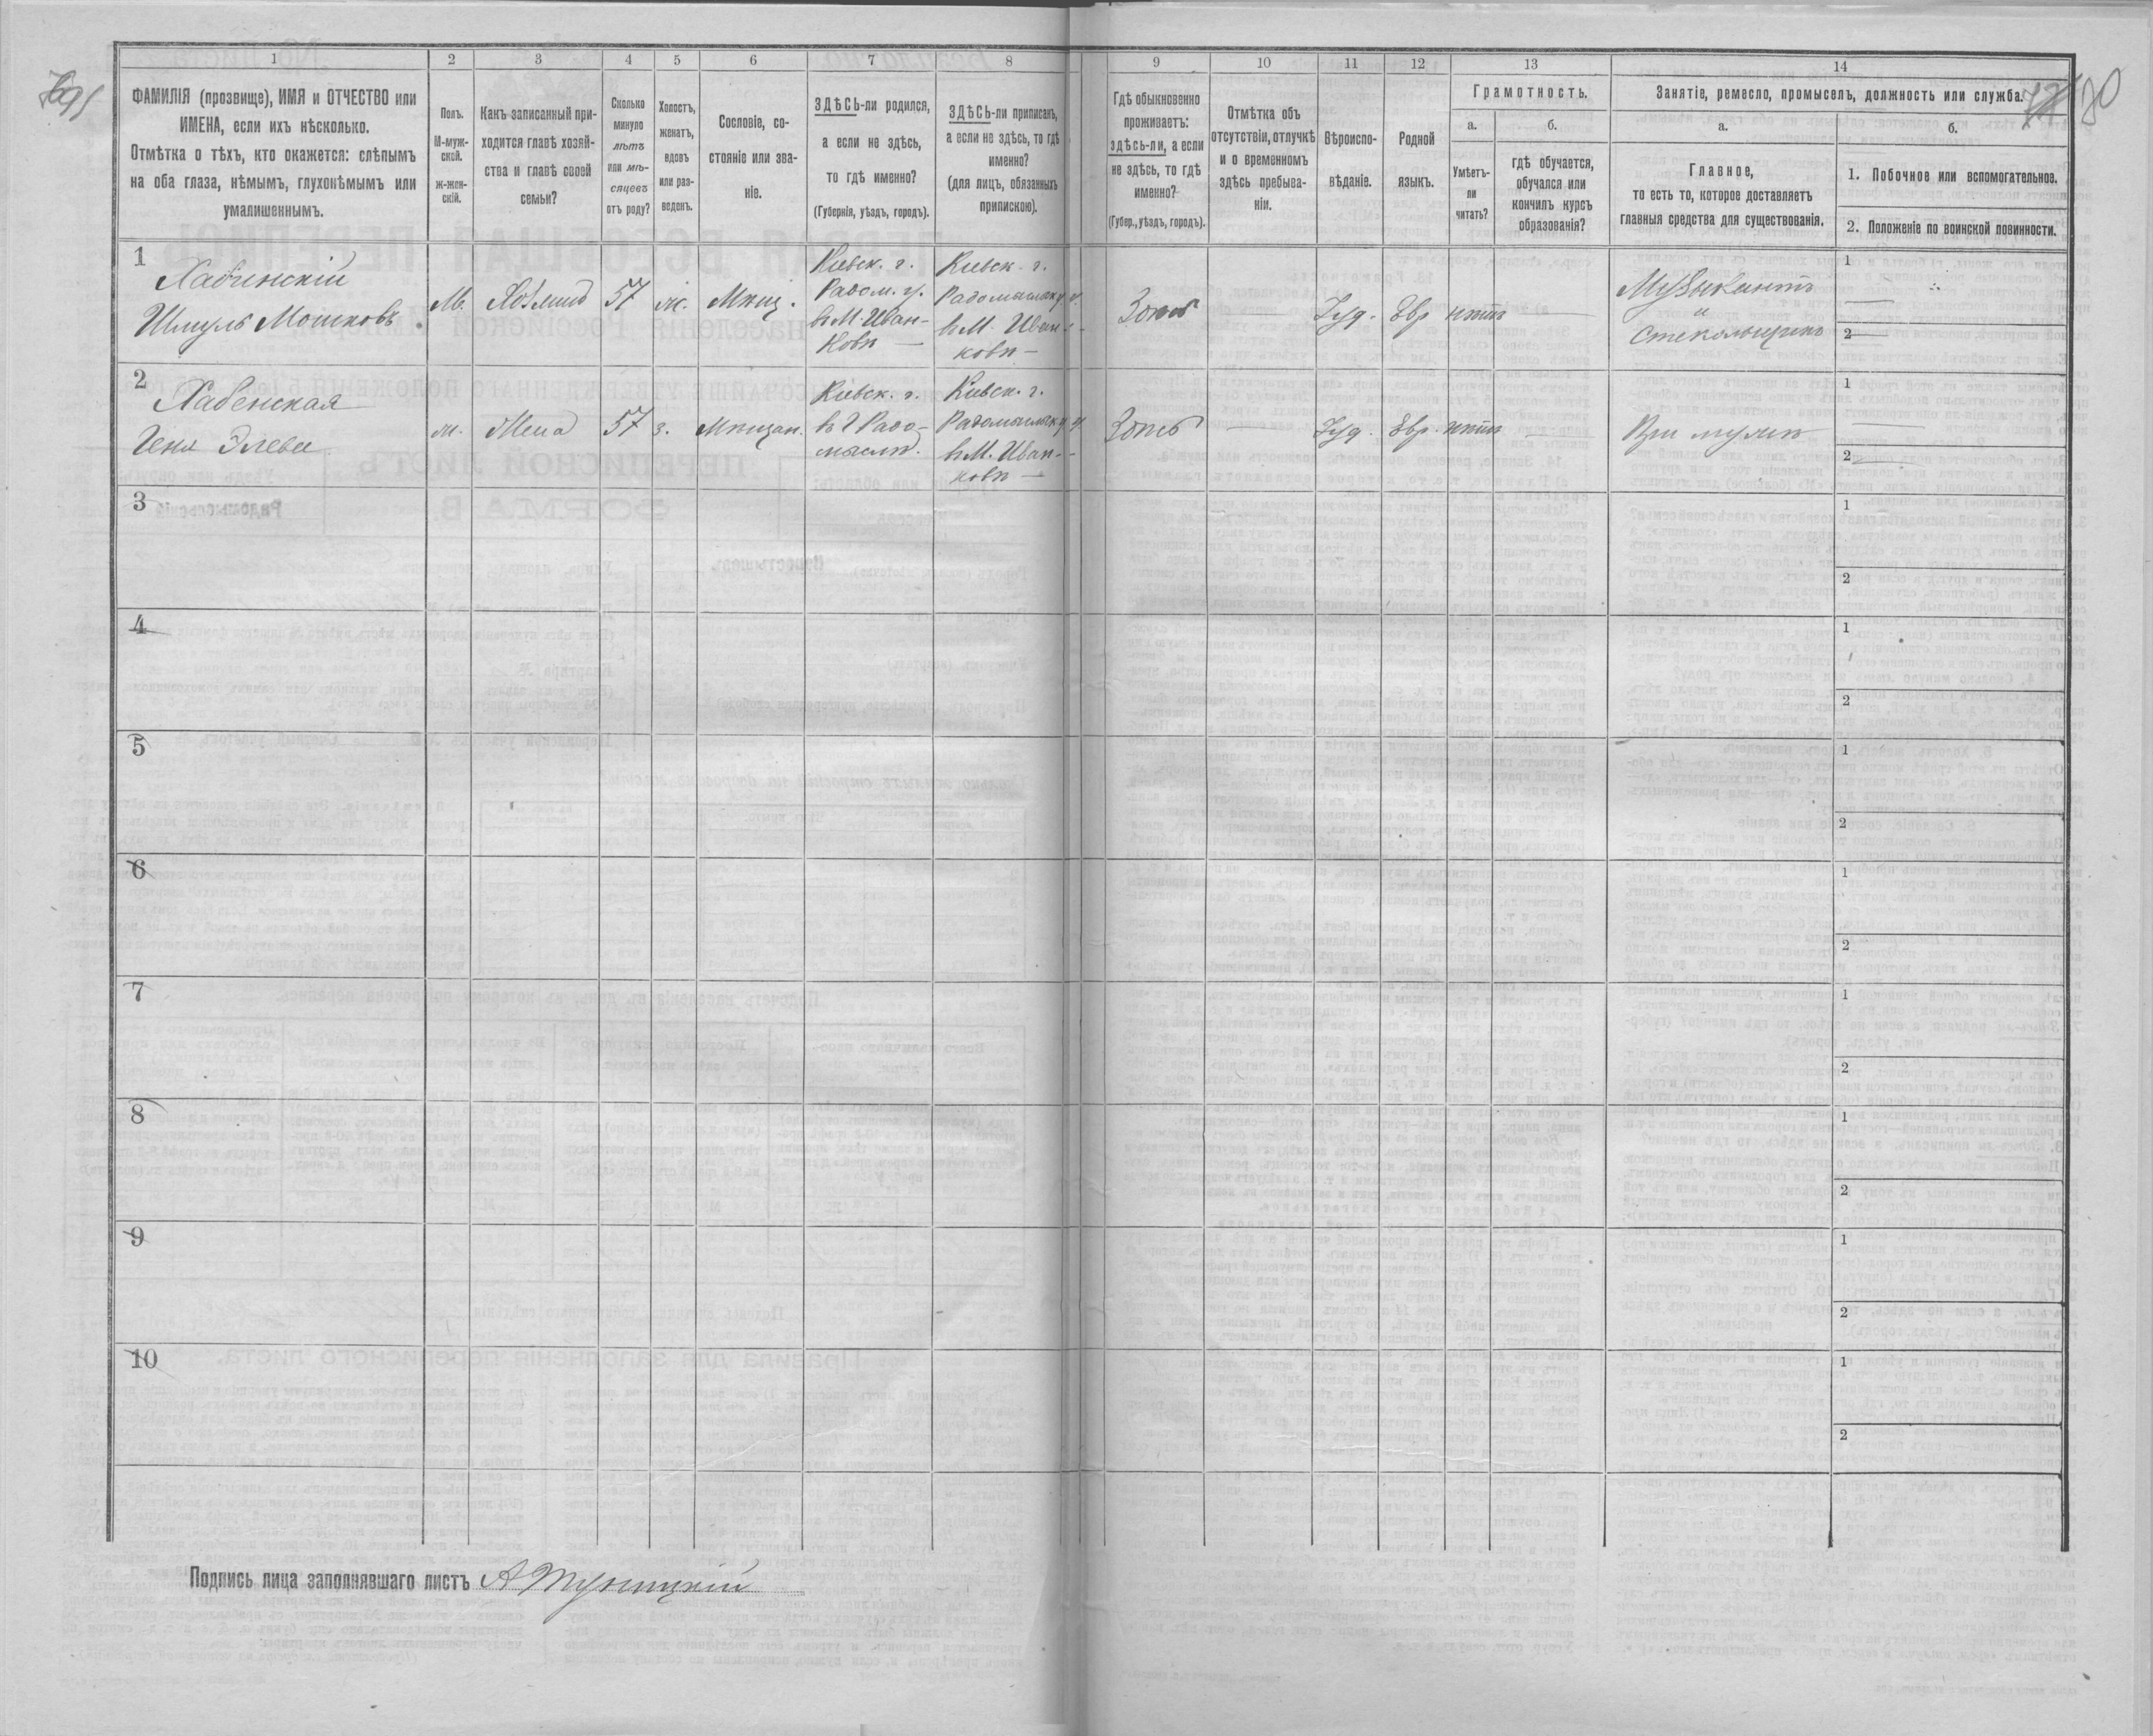 1 2 3 4 5 6 7 8 9 10 11 12 13 14
ФАМИЛІЯ (прозвище), ИМЯ и ОТЧЕСТВО или
ИМЕНА, если ихъ нѣсколько.
Отмѣтка о тѣхъ, кто окажется: слѣпымъ
на оба глаза, нѣмымъ, глухонѣмымъ или
умалишеннымъ.
Полъ.
М-муж-
ской.
ж-жен-
скій.
Какъ записанный при-
ходится главѣ хозяй-
ства и главѣ своей
семьи?
Сколько
минуло
лѣтъ
или мѣ-
сяцевъ
отъ роду?
Холостъ,
женатъ,
вдовъ
или раз-
веденъ.
Сословіе, со-
стояніе или зва-
ніе.
ЗДѢСЬ-ли родился,
а если не здѣсь,
то гдѣ именно?
(Губернія, уѣздъ, городъ).
ЗДѢСЬ-ли приписанъ,
а если не здѣсь, то гдѣ
именно?
(для лицъ, обязанныхъ
припискою).
Гдѣ обыкновенно
проживаетъ:
здѣсь-ли, а если
не здѣсь, то гдѣ
именно?
(Губер., уѣздъ, городъ).
Отмѣтка объ
отсутствіи, отлучкѣ
и о временномъ
здѣсь пребыва-
ніи.
Вѣроиспо-
вѣданіе.
Родной
языкъ.
Грамотность.
а.
Умѣетъ-
ли
читать?
б.
гдѣ обучается,
обучался или
кончилъ курсъ
образованія?
Занятіе, ремесло, промыселъ, должность или служба.
80
а.
Главное,
то есть то, которое доставляетъ
главныя средства для существованія.
б.
1. Побочное или вспомогательное.
2. Положеніе по воинской повинности.
1
Хабенскій
Шмуль Мошковъ
М.
Хозяинъ
57
ж.
Мѣщ.
Кіевск. г.
Радом. у.
в М. Иван-
ковѣ —
Кіевск. г.
Радомышльск у.
в М. Иван-
ковѣ —
Здѣсь
—
Іуд.
Евр
нѣтъ
—
Музыкантъ
и
стекольщикъ
1 —
2 —
2
Хабенская
Геня Элева
ж.
Жена
57
з.
Мѣщан.
Кіевск. г.
в г Радо-
мыслѣ.
Кіевск. г.
Радомышльск у
в М. Иван-
ковѣ —
Здѣсь
—
Іуд.
Евр.
нѣтъ
—
При мужѣ
1 —
2 —
3
1
2
4
1
2
5
1
2
6
1
2
7
1
2
8
1
2
9
1
2
10
1
2
Подпись лица заполнявшаго листъ